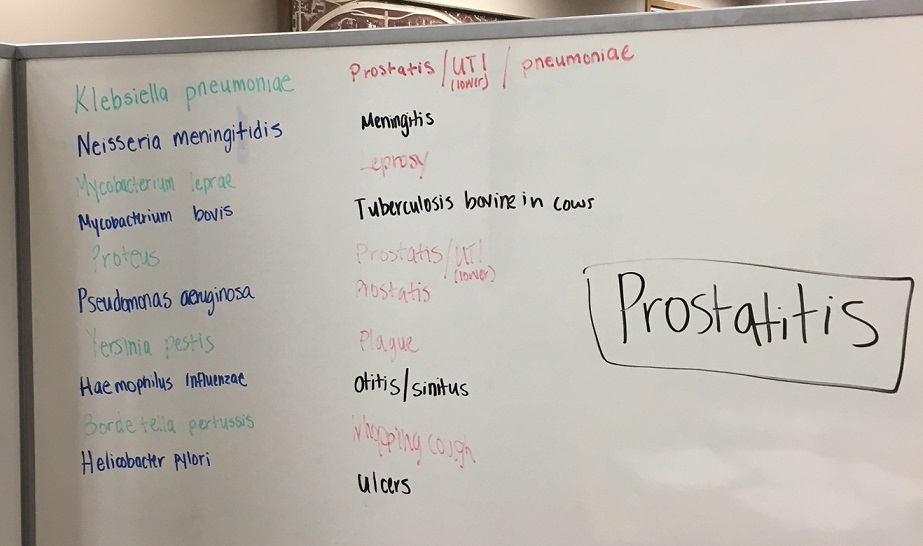 Klebsiella pneumoniae Prostatis/UTI/pneumoniae
(lower)
Neisseria meningitidis Meningitis
Mycobacterium leprae Leprosy
Mycobacterium bovis Tuberculosis bovine in cows
Proteus Prostatis/UTI
(lower)
Pseudomonas aeruginosa Prostatis
Yersinia pestis Plague
Haemophilus Influenzae otitis/sinitus
Bordetella pertussis Whopping cough
Helicobacter pylori ulcers
Prostatitis